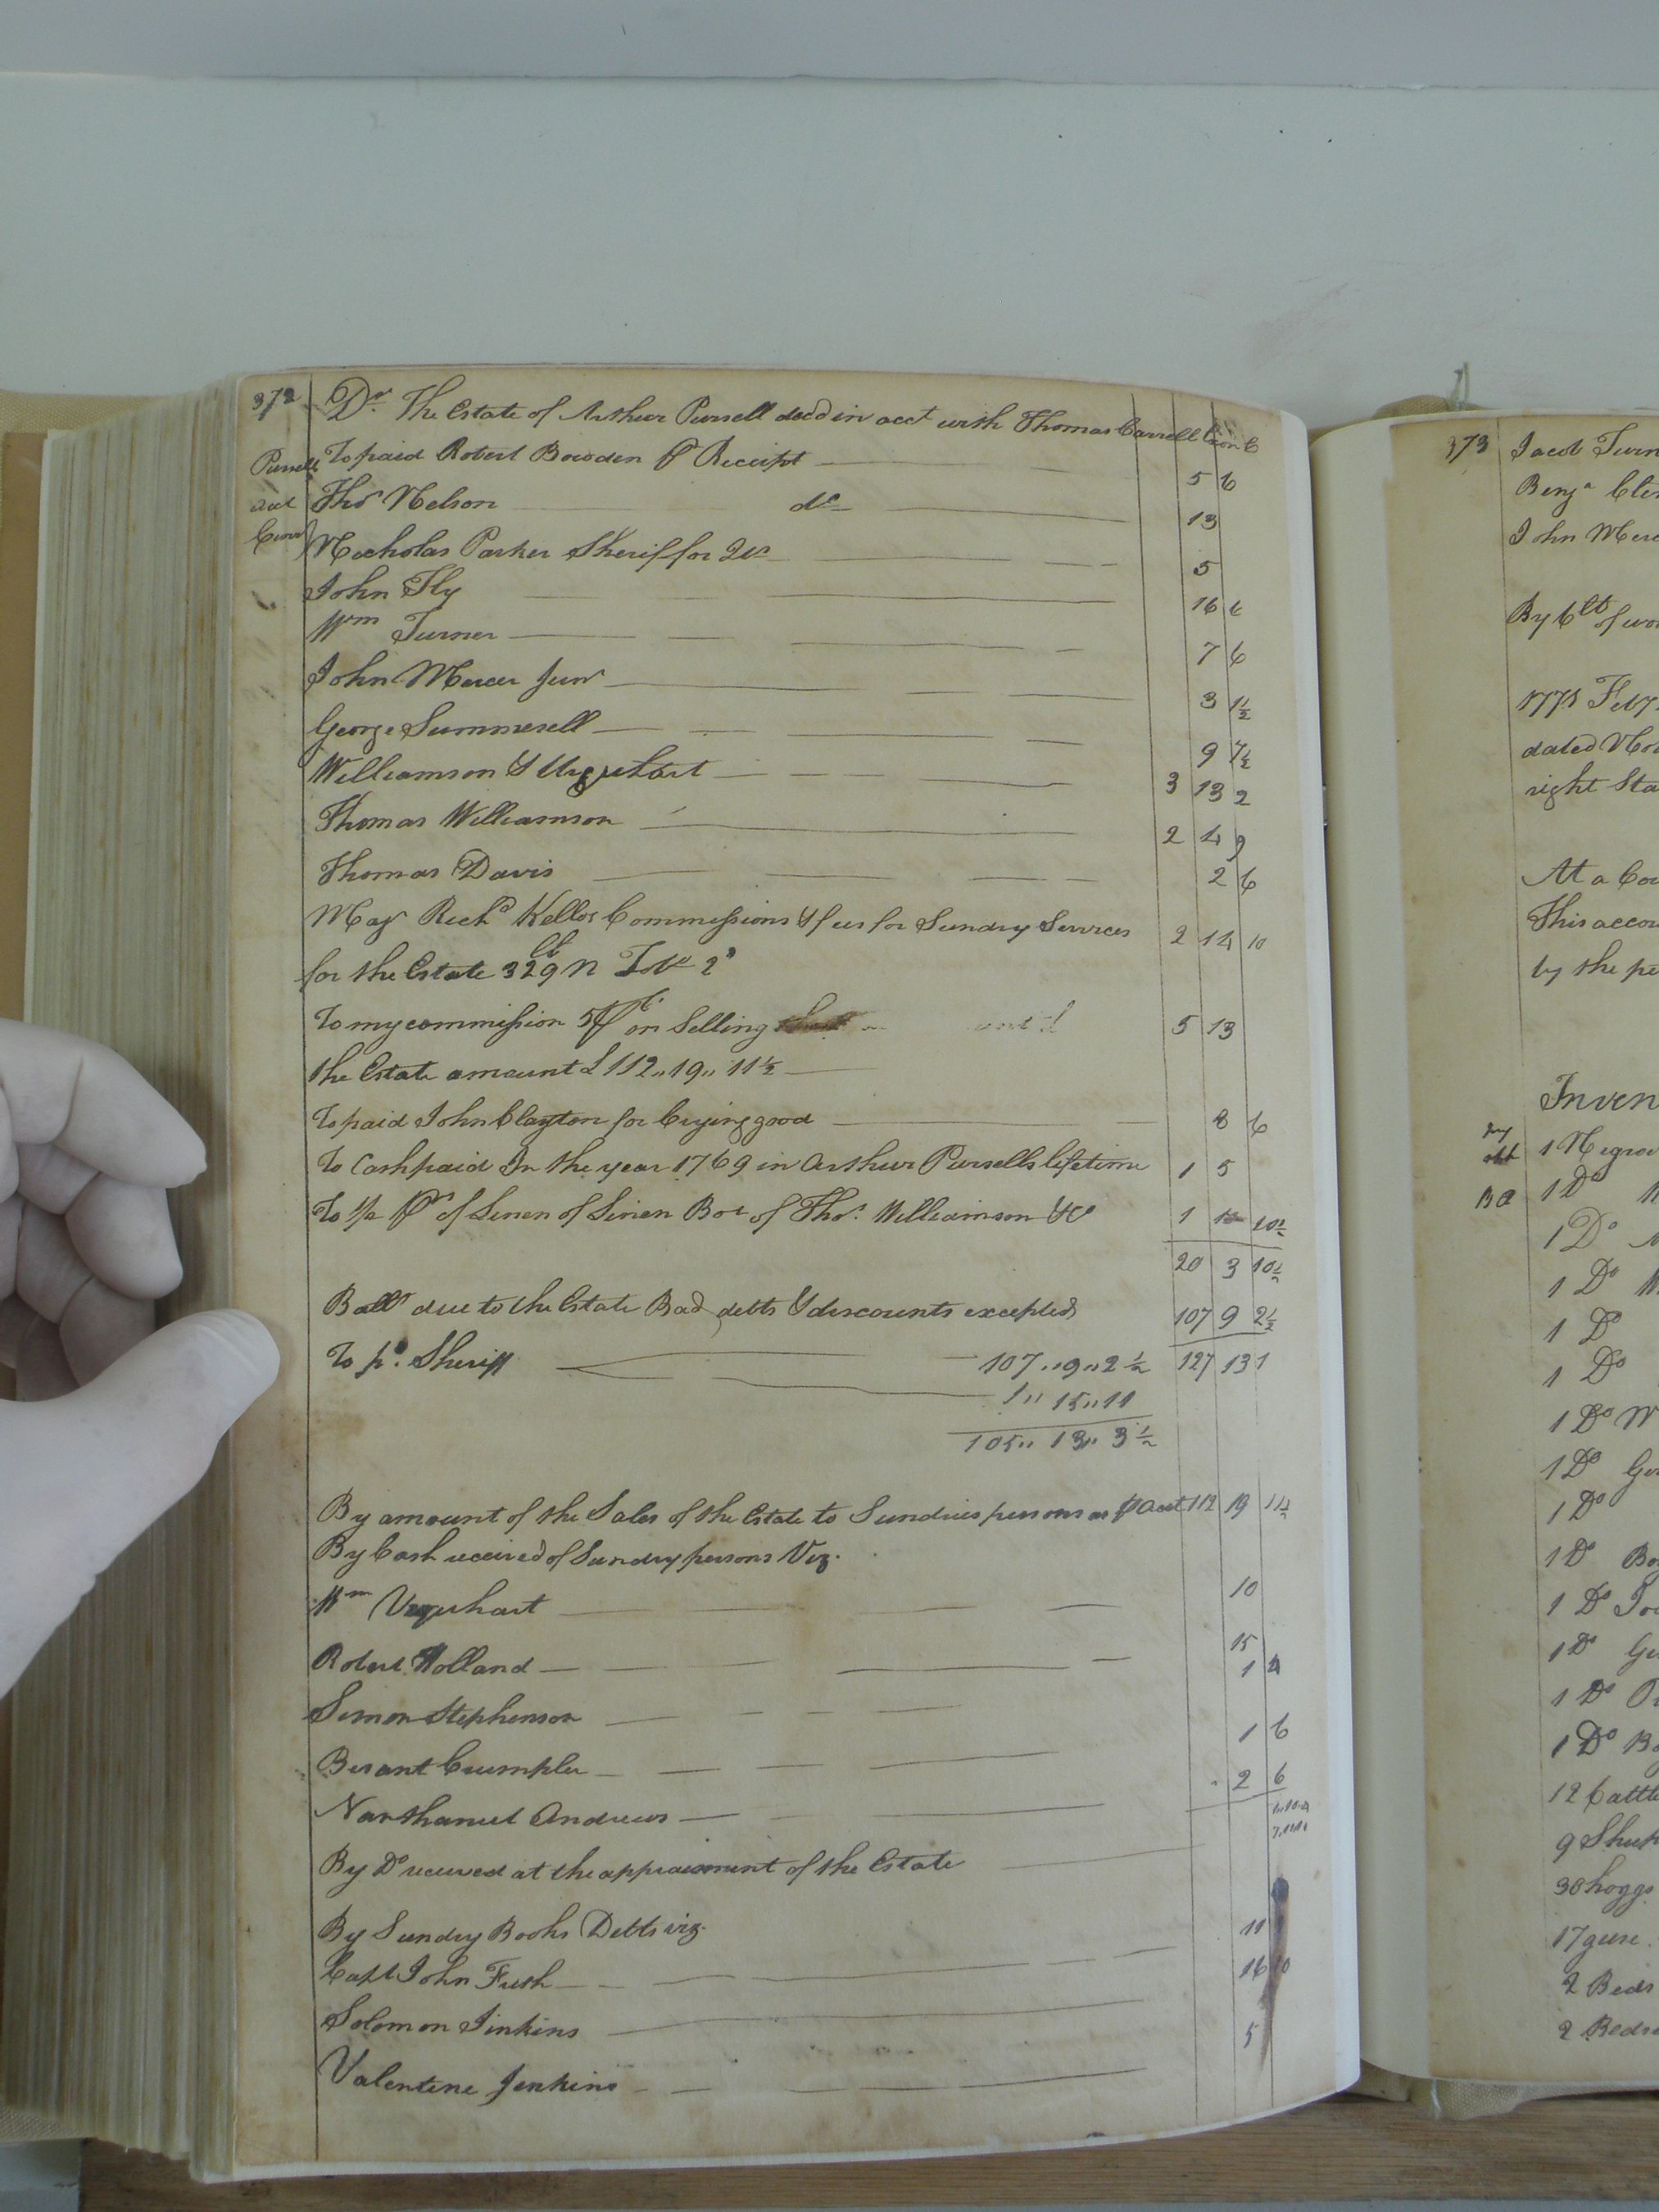 372 Dr. The Estate of Arthur Pursell decd in acct with Thomas Carrell
Pursells To paid Robert Bowden ⅌ Receipt — 5 6
acct Thos Nelson do — 13
Curr Nicholas Parker Sheriff for — 5
John Fly — 16 6
Wm Turner — 7 6
John Mercer Junr — 3 1½
George Summerell — 9 7½
Williamson & Urquhart — 3 13 2
Thomas Williamson — 2 4 9
Thomas Davis — 2 6
Majr Richd Kello's Commissions & fees for Sundry Services 2 14 10
for the Estate 329 lb N Tobo
To my commission 5 ⅌ Ct on Selling 5 13
the Estate amount £ 112,,19,,11½ —
To paid John Clayton for Crying good — 8 6
To Cash paid In the year 1769 in Arthur Pursells lifetime 1 5
To ½ ps of Linen of Linen Bot of Thos. Williamson &Co 1 10½
20 3 10½
Balle due to the Estate Bad debts & discounts excepted 107 9 2½
To pd. Sheriff — 107,,9,,2½ 127 13 1
1,, 15,, 11
105,, 13,, 3½
By amount of the Sales of the Estate to Sundries persons as ⅌ Acct 112 19 11½
By Cash received of Sundry persons Viz.
Wm Urquhart — 10
15
Robert Holland — 1 4
Simon Stephenson — 1 6
Berant Crumpler — 2 6
Narthaniel Andrews —
By Do received at the appraisment of the Estate
By Sundry Books Debts viz. 11
Capt John Futh — 16 10
Solomon Jinkins — 5
Valentine Jenkins —
373 Jacob Turn
Benja Cle
John Merc
By
1771 Feby
dated Nov
right Sta
At a Cou
This accou
by the pe
Inven
1 Negro
1 Do
1 Do
1 Do
1 Do
1 Do
1 Do W
1 Do Ge
1 Do
1 Do Bo
1 Do
1 Do Ge
1 Do
1 Do Bo
12 Cattle
9 Sheep
30 hoggs
17 geese
2 Beds
2 Beds